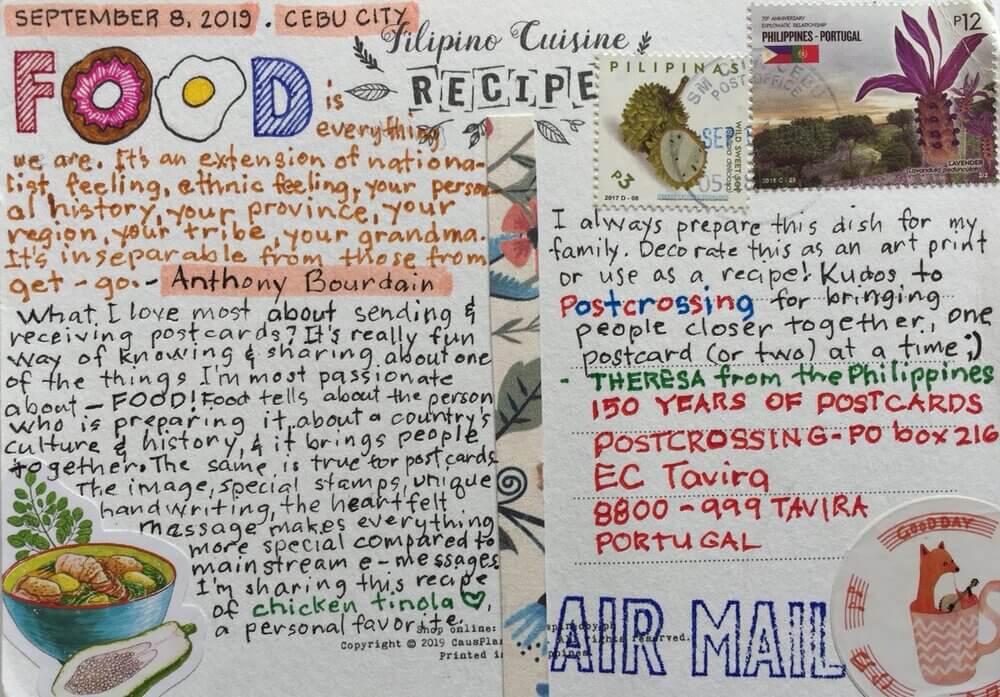 SEPTEMBER 8, 2019 . CEBU CITY
Filipino Cuisine
RECIPE
FOOD is
everything
we are. It's an extension of nationa-
list, feeling, ethnic feeling, your person
al history, your province, your
region, your tribe, your grandma.
It's inseparable from those from
get-go. - Anthony Bourdain
What I love most about sending &
receiving postcards? It's really fun
way of knowing & sharing about one
of the things I'm most passionate
about - FOOD! Food tells about the person
who is preparing it, about a country's
culture & history, & it brings people
together. The same is true for postcards.
The image, special stamps, unique
handwriting, the heartfelt
message makes everything
more special compared to
mainstream e-messages
I'm sharing this recipe
of chicken tinola ♡,
a personal favorite.
Shop online:
Copyright © 2019
Printed in
All rights reserved.
PILIPINAS
WILD SWEET SOP
P3
2017 D - 08
70TH ANNIVERSARY
DIPLOMATIC RELATIONSHIP
PHILIPPINES - PORTUGAL
P12
LAVENDER
(Lavandula pedunculata)
2/2
SM
POST
OFFICE
SEP
I always prepare this dish for my
family. Decorate this as an art print
or use as a recipe! Kudos to
Postcrossing for bringing
people closer together, one
postcard (or two) at a time ;)
- THERESA from the Philippines
150 YEARS OF POSTCARDS
POSTCROSSING - PO box 216
EC Tavira
8800-999 TAVIRA
PORTUGAL
AIR MAIL
GOOD DAY